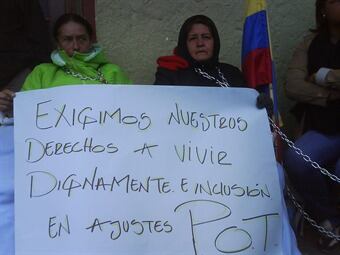 EXIGIMOS NUESTROS
DERECHOS A VIVIR
DIGNAMENTE E INCLUSIÓN
EN AJUSTES P.O.T.